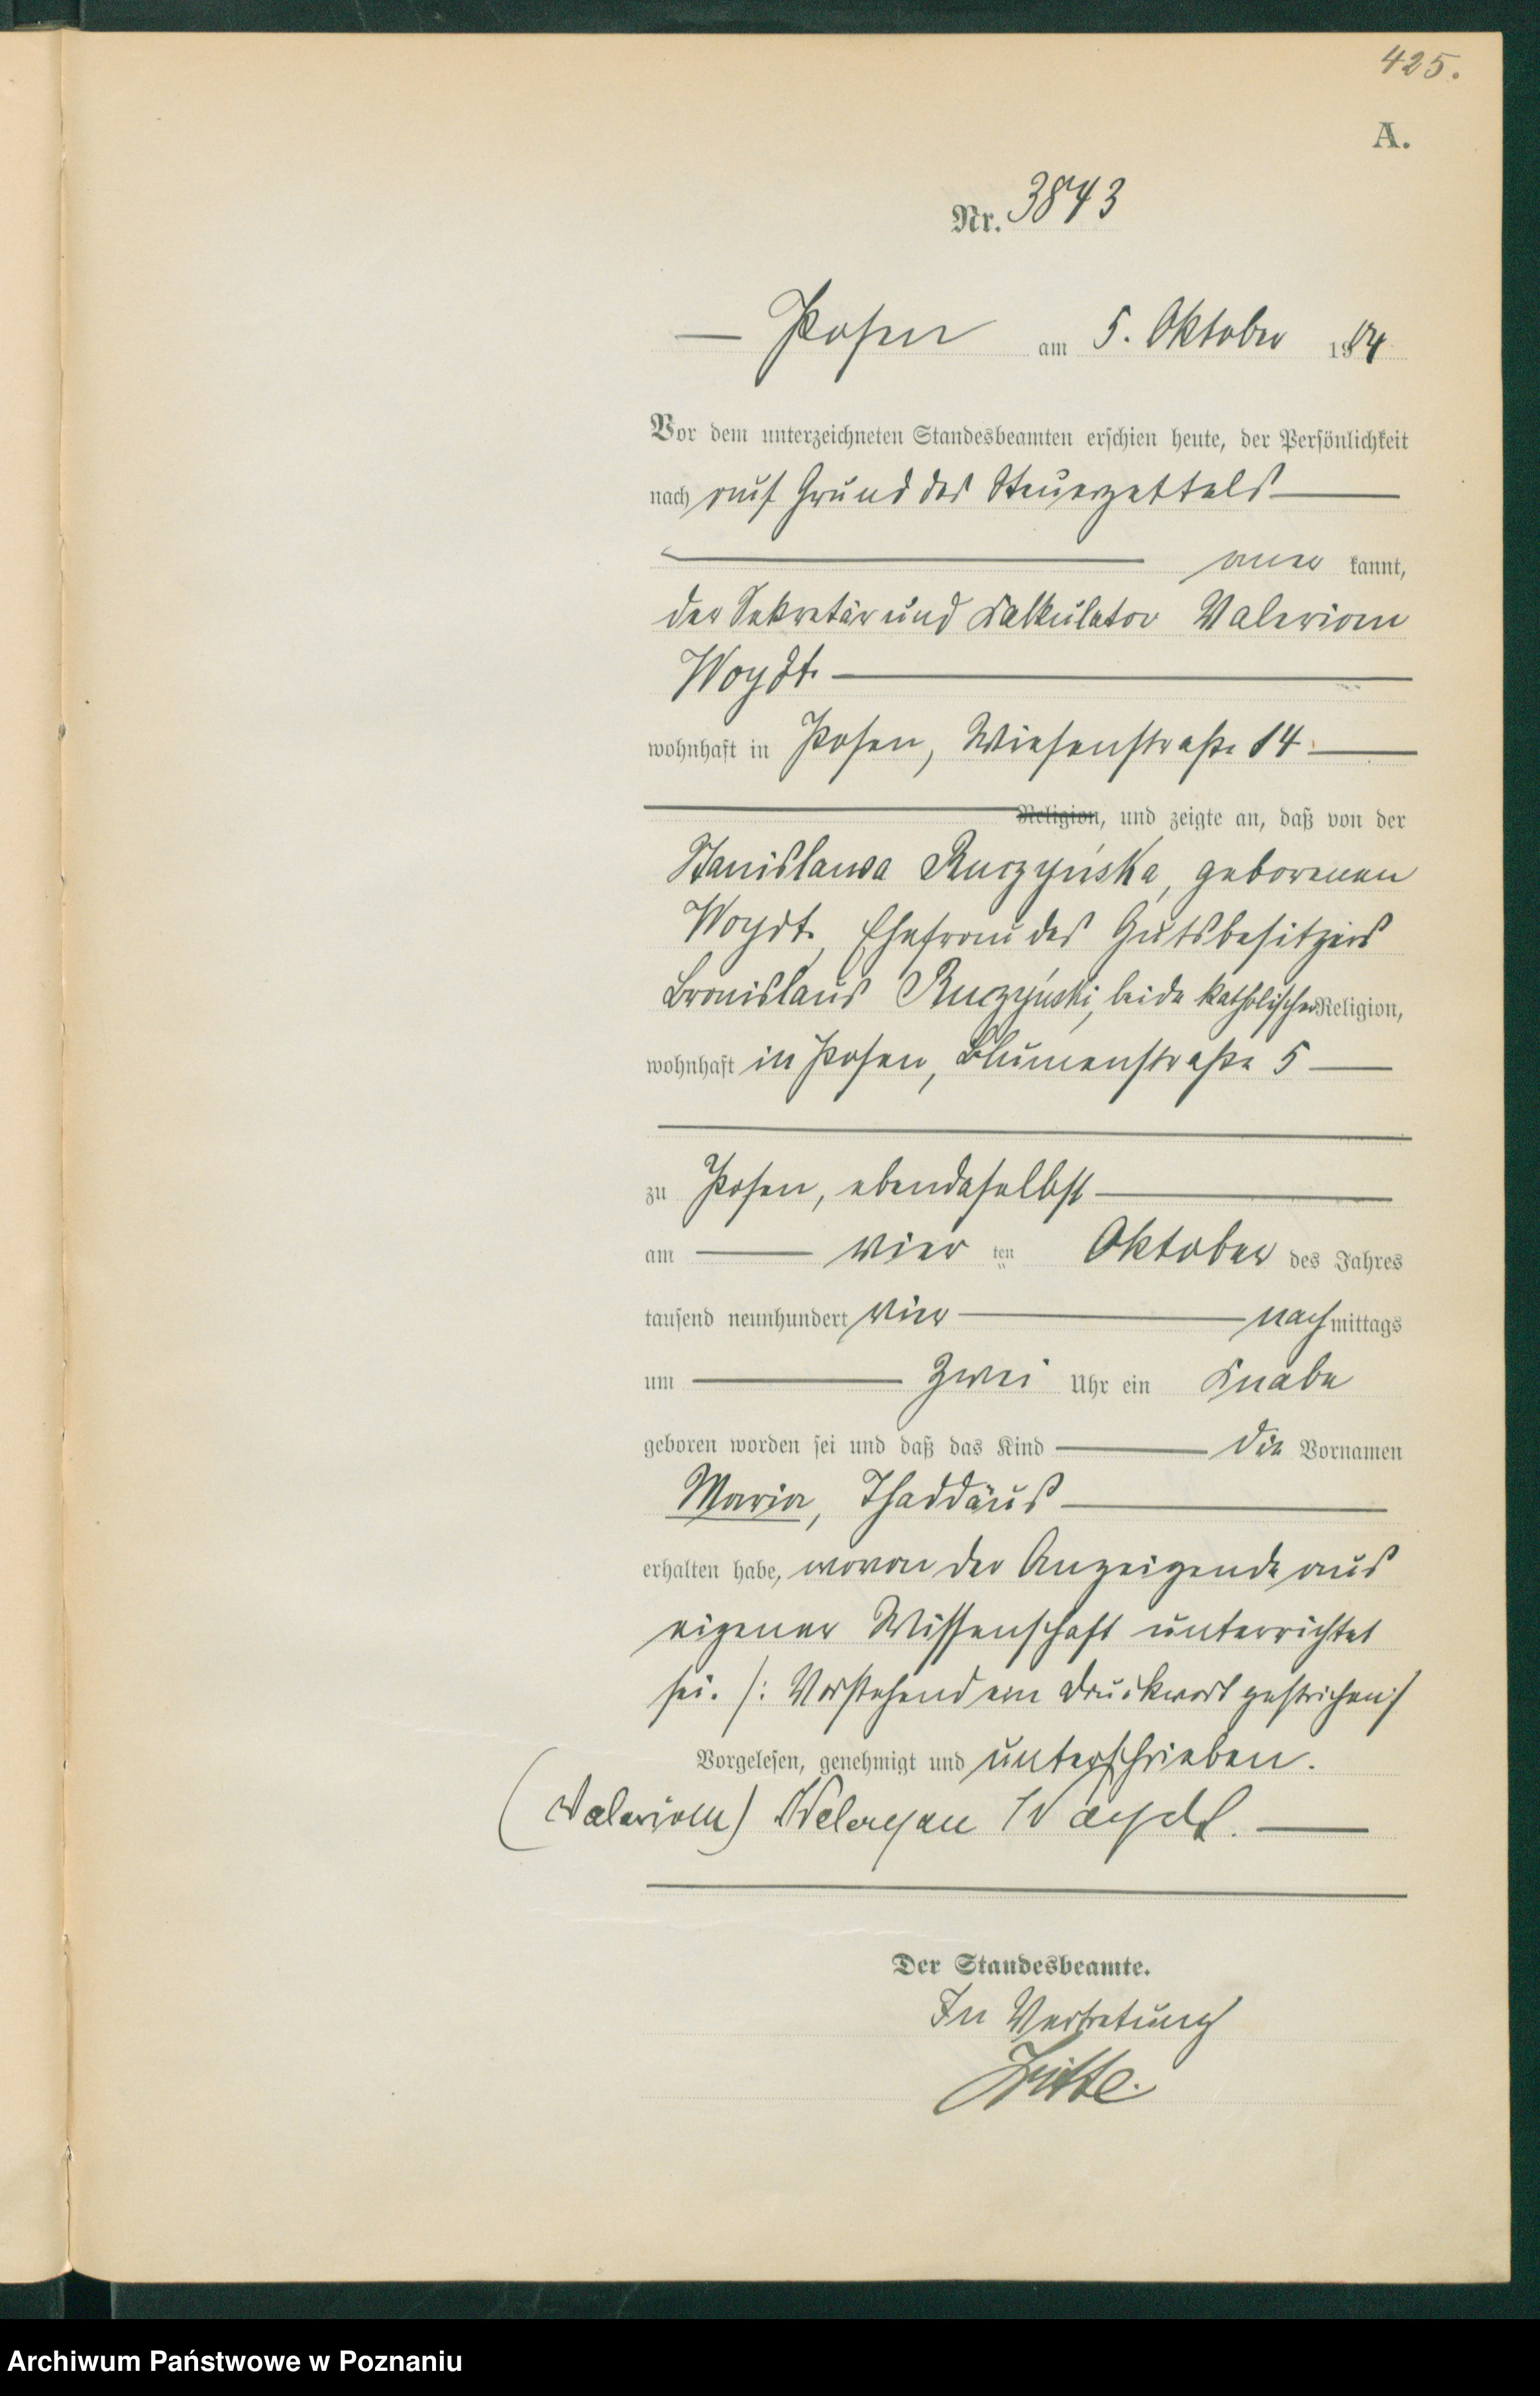 425.
A.
Nr. 3843
Posen am 5. Oktober 1904
Vor dem unterzeichneten Standesbeamten erschien heute, der Persönlichkeit
nach auf Grund des Steuerzettels
aner kannt,
der Sekretär und Kalkulator Valerian
Woydt
wohnhaft in Posen, Wiesenstraße 14
Religion, und zeigte an, daß von der
Stanislawa Ruczyńska, geborenen
Woydt, Ehefrau des Gutsbesitzers
Bronislaus Ruczyński, beide katholischer Religion,
wohnhaft in Posen, Blumenstraße 5
zu Posen, ebendaselbst
am vier ten Oktober des Jahres
tausend neunhundert vier nachmittags
um zwei Uhr ein Knabe
geboren worden sei und daß das Kind die Vornamen
Maria, Thaddäus
erhalten habe, wovon der Anzeigende aus
eigener Wissenschaft unterrichtet
sei. /: Vorstehend ein Druckwort gestrichen :/
Vorgelesen, genehmigt und unterschrieben.
(Valerian) Waleryan Woydt.
Der Standesbeamte.
In Vertretung
Archiwum Państwowe w Poznaniu